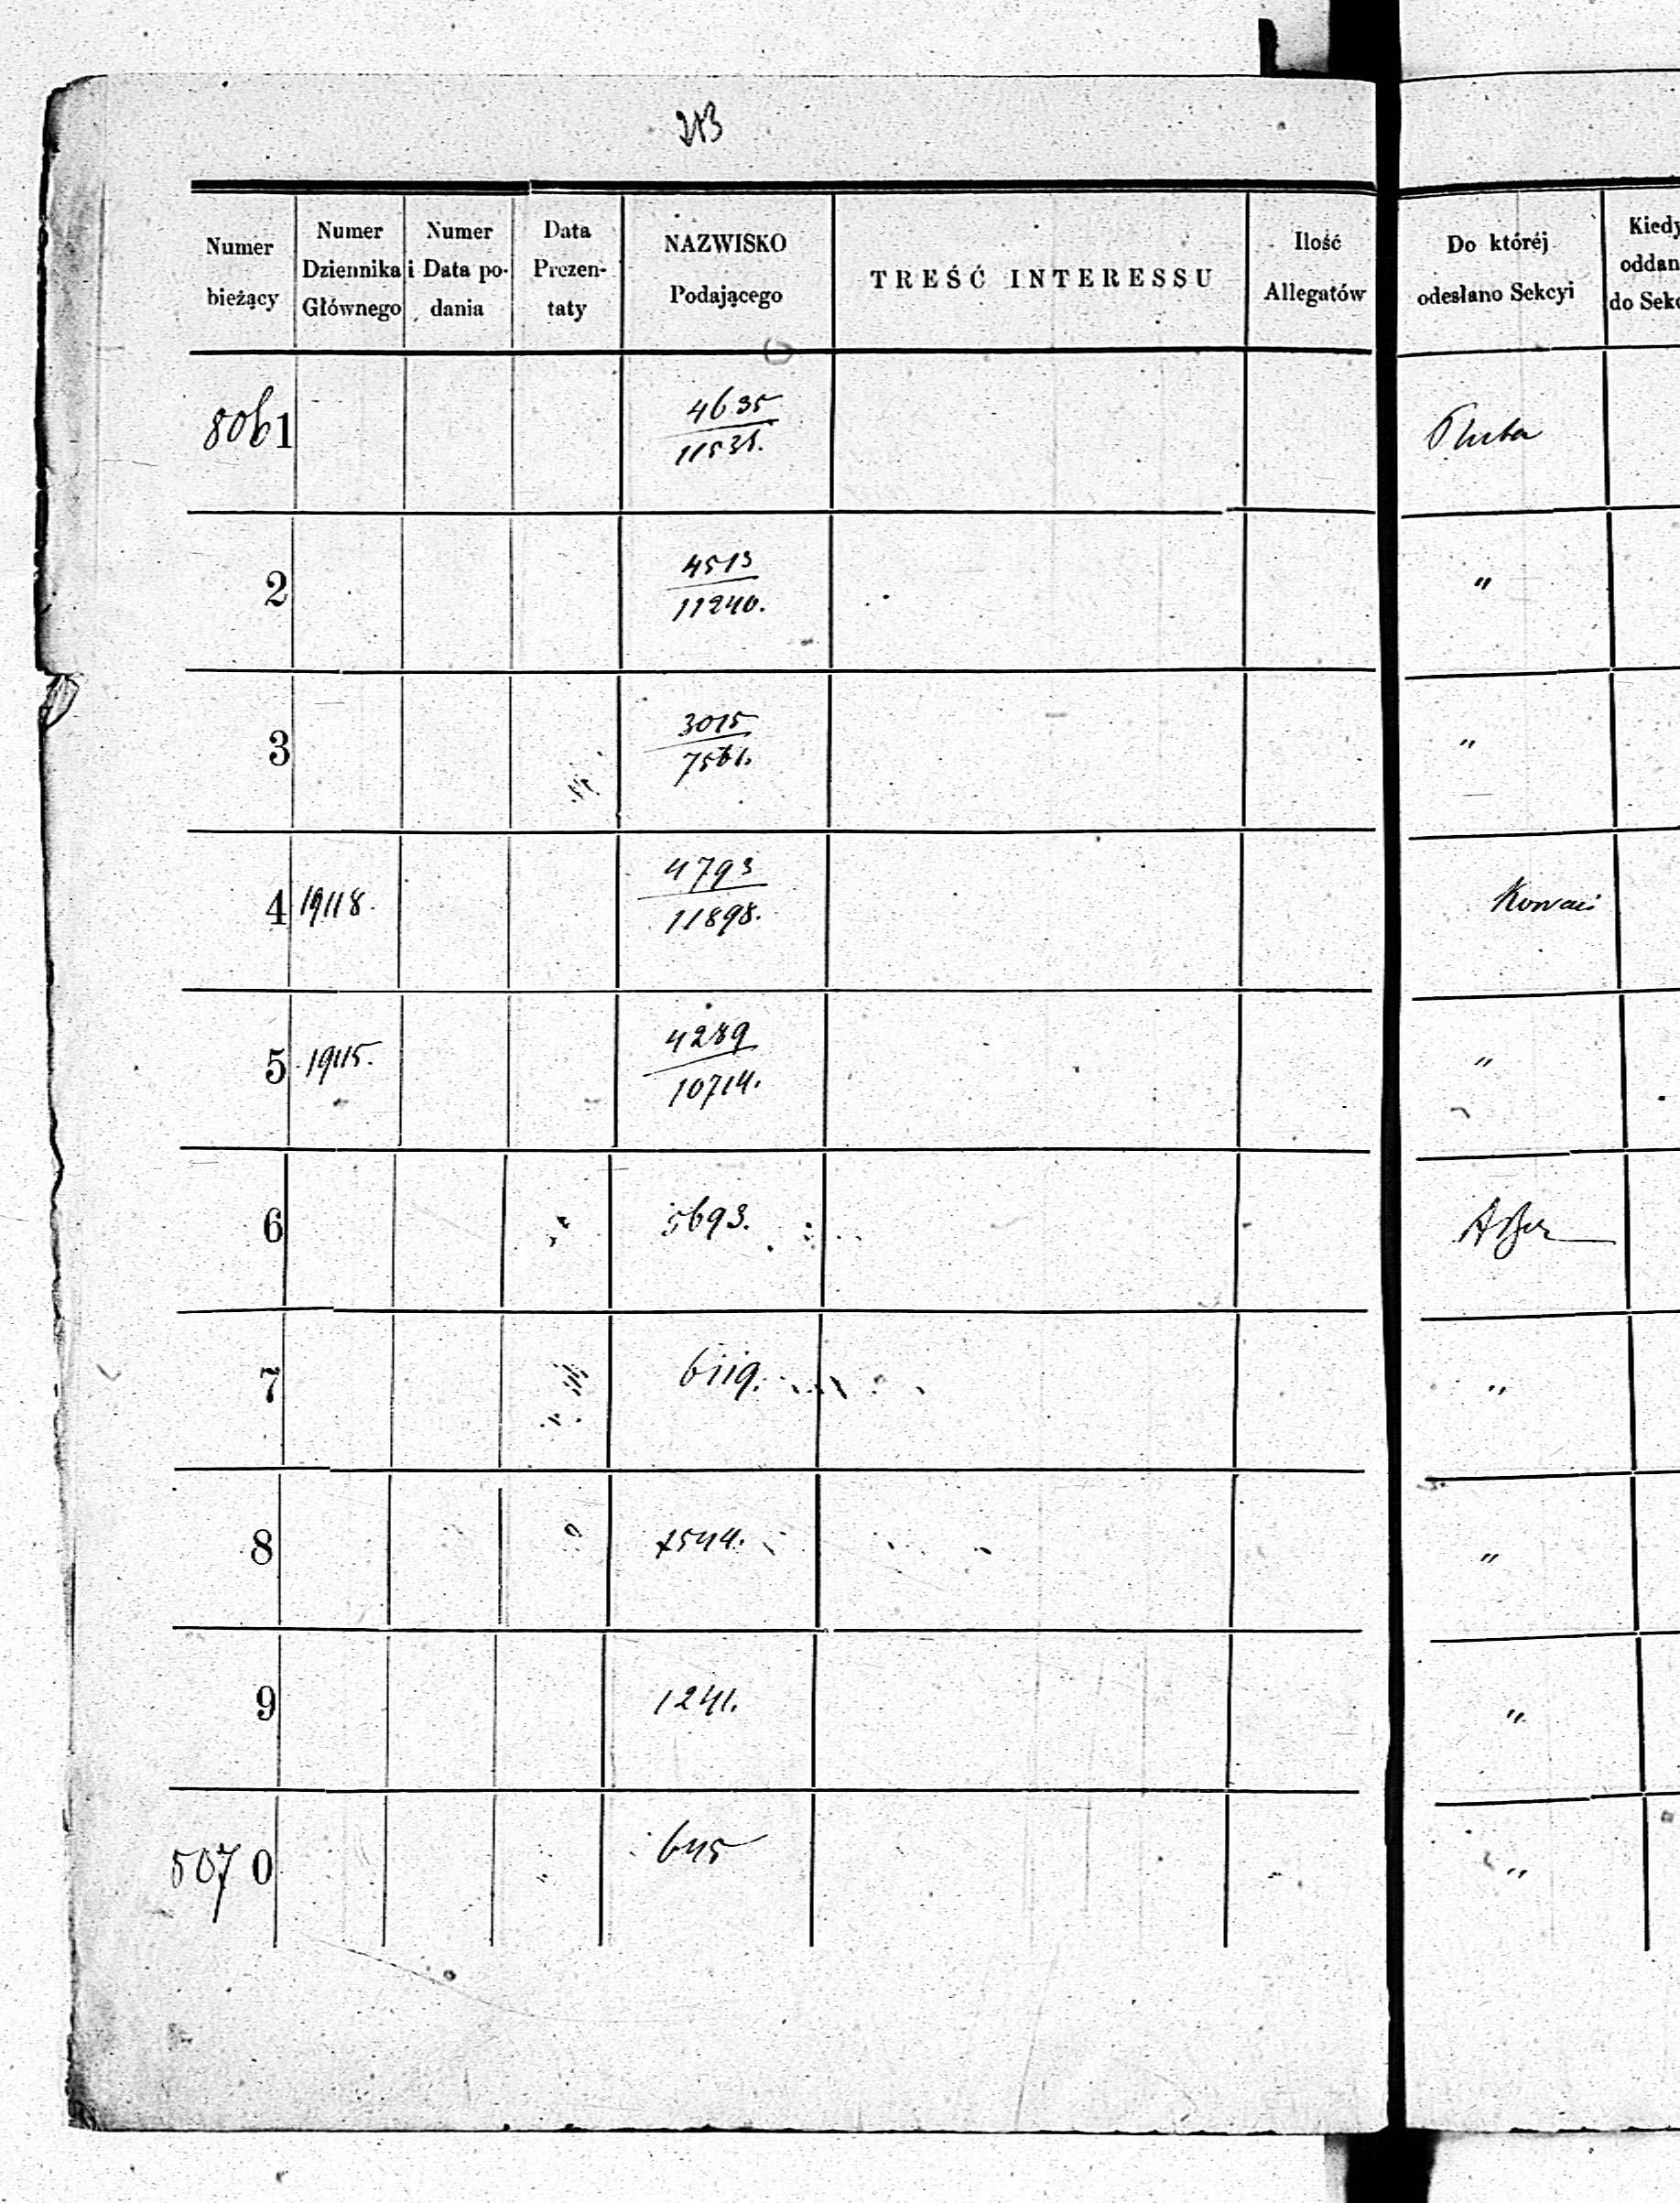 213
Numer bieżący
Numer Dziennika Głównego
Numer i Data podania
Data Prezen-taty
NAZWISKO Podającego
TREŚĆ INTERESSU
Ilość Allegatów
Do któréj odesłano Sekcyi
Kiedy oddan do Sekc
8061 4635
11535.
2 4513 "
11240.
3 3015 "
7561.
4 19118. 4793
11898.
5 19115. 4289 "
10714.
6 5693.
7 6119. "
8 1544. "
9 1241. "
5070 645 "